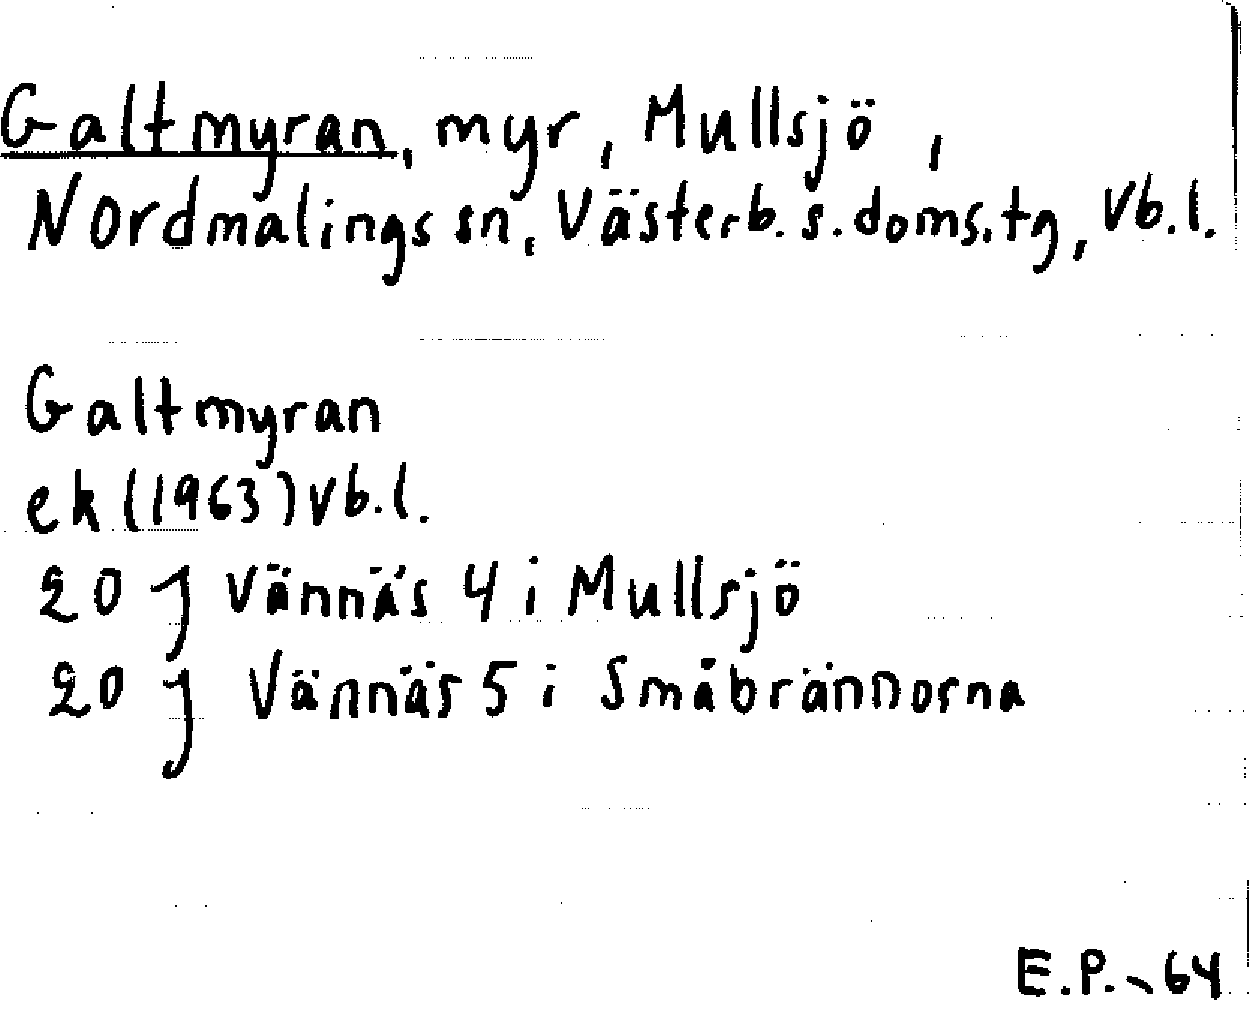 Galtmyran, myr, Mullsjö,
Nordmalings sn, Västerb. s. doms.tg, Vb.l.
Galtmyran
ek (1963) Vb.l.
20 J Vännäs 4 i Mullsjö
20 J Vännäs 5 i Småbrännorna
E.P. -64